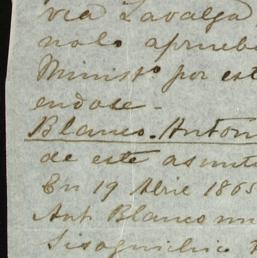 via Lavalga
nolo aprueba
Minist.o por est
endose -
Blanco. Anton
de este asunto
En 19 Abril 1865
Ant. Blanco
Sisoguichic